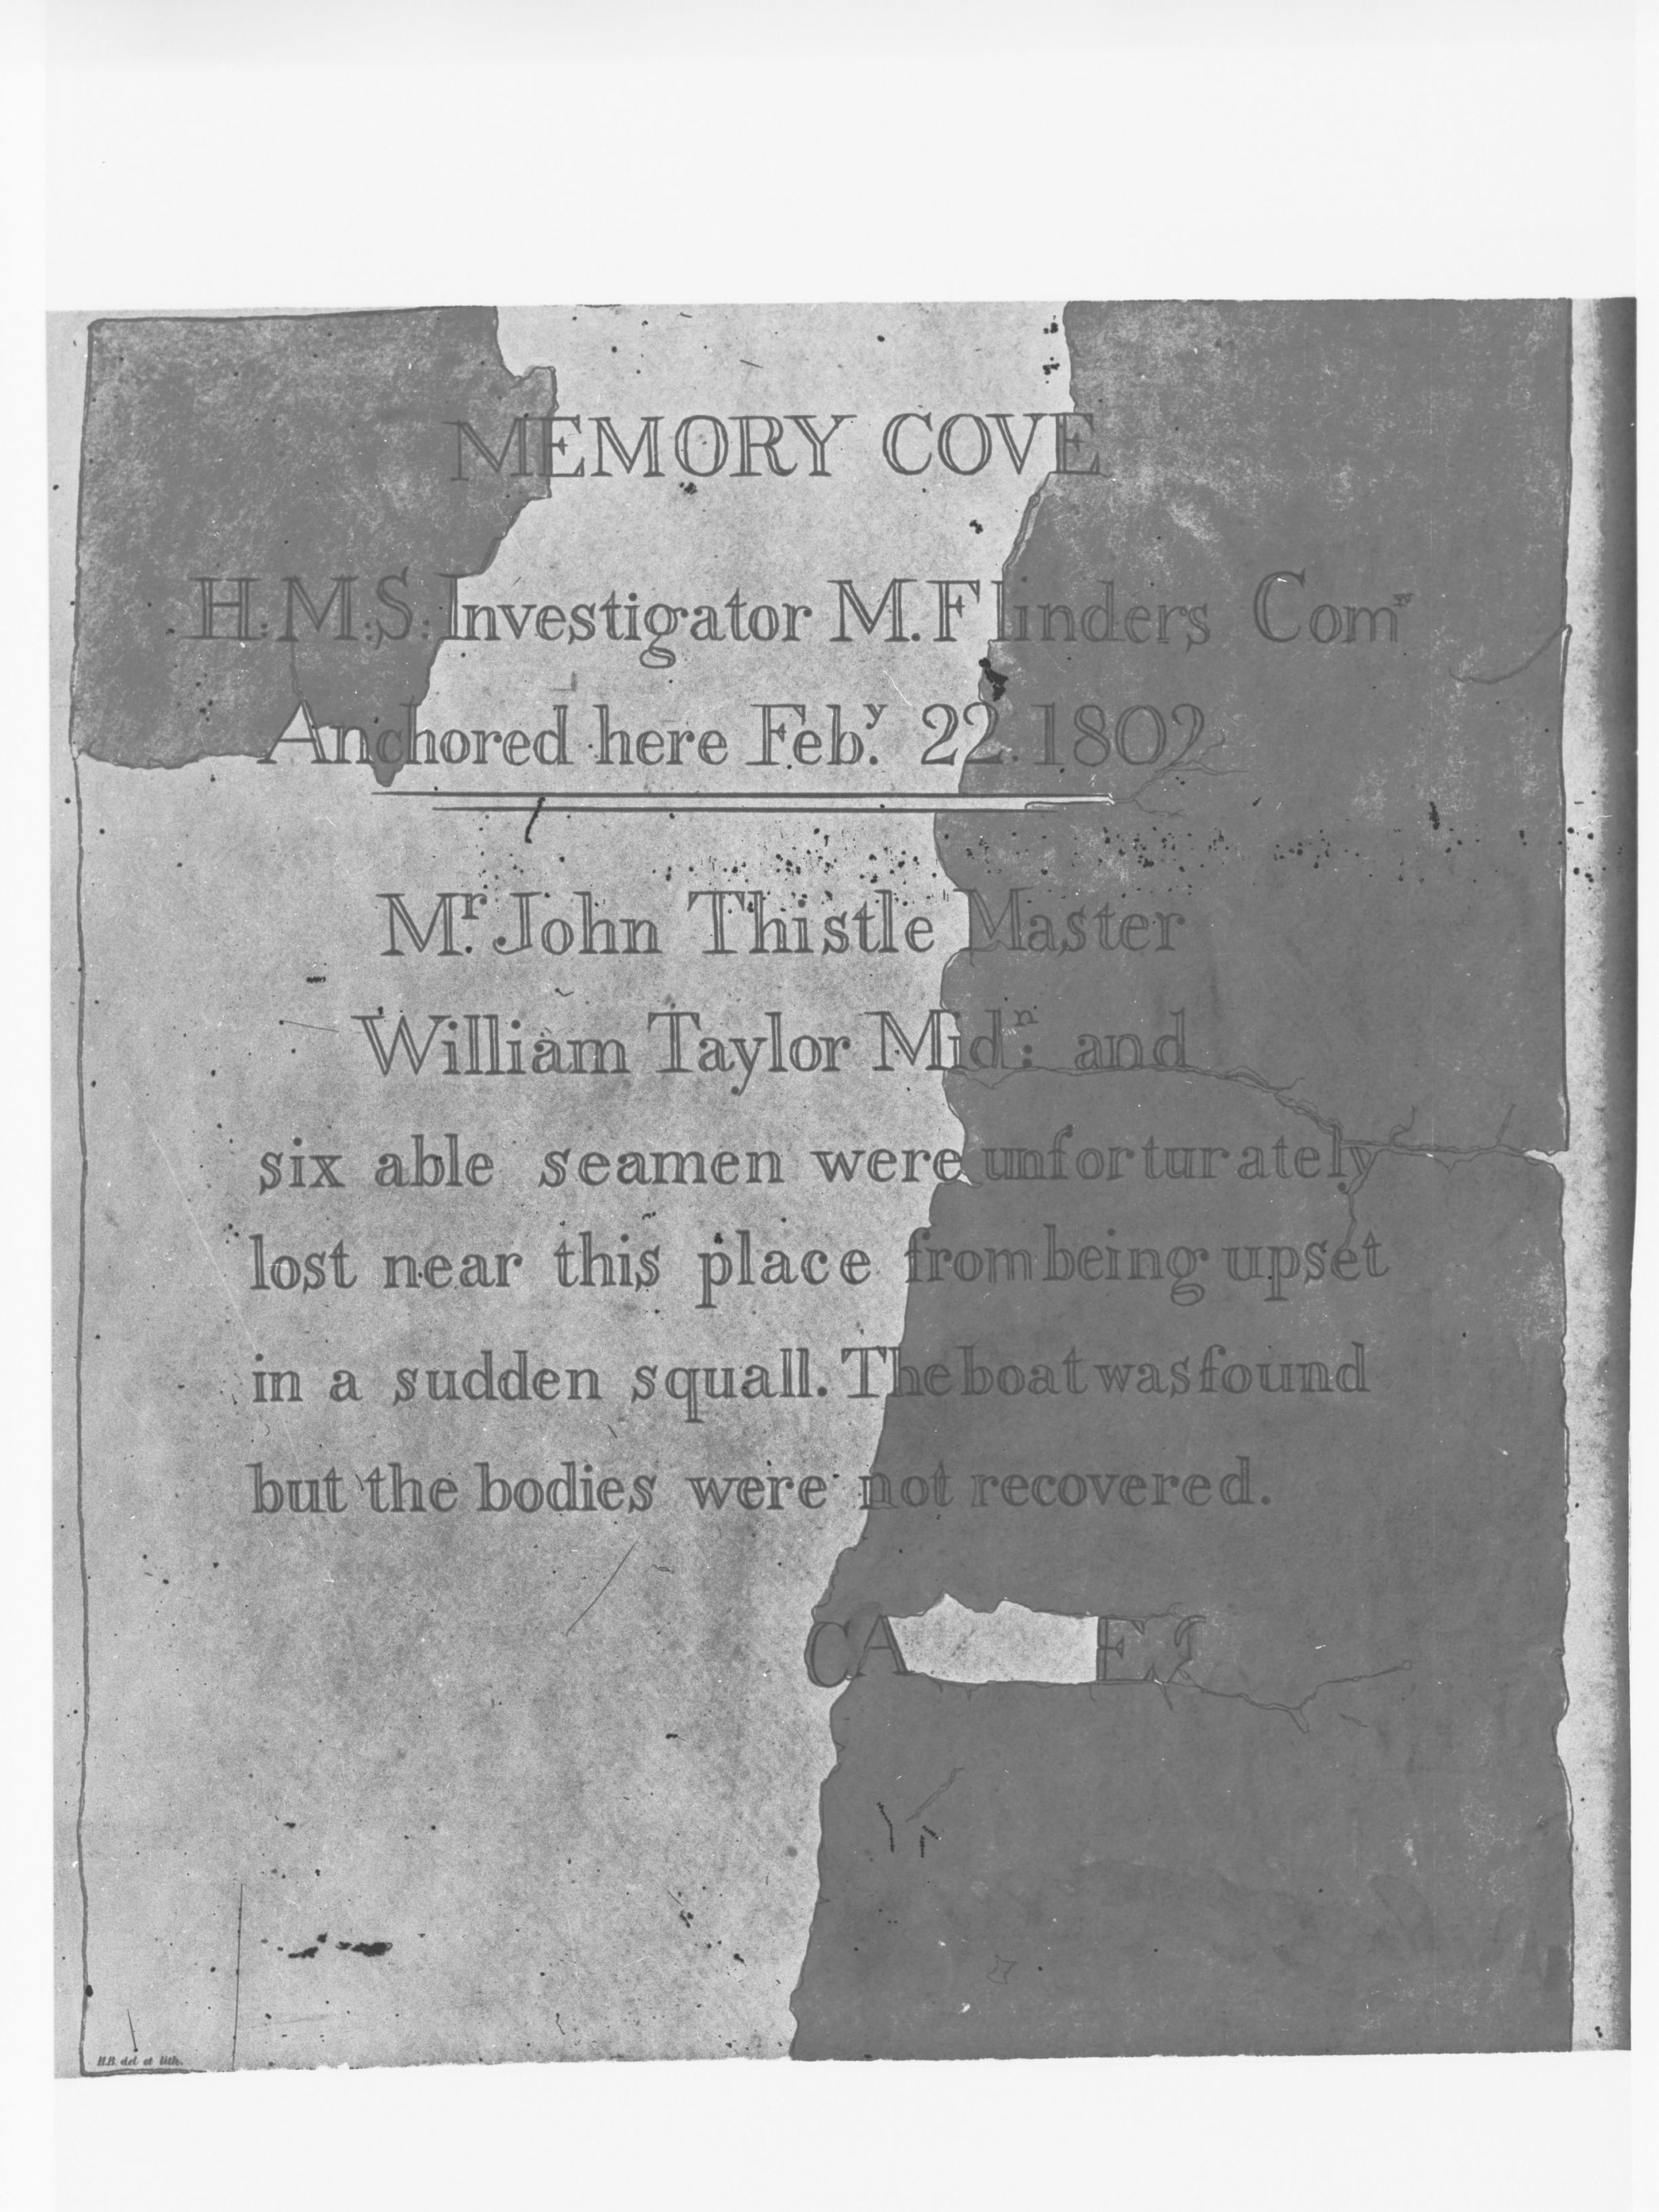 MEMORY COVE
H:M:S: Investigator M. Flinders Comr
Anchored here Feby. 22. 1802
Mr. John Thistle Master
William Taylor Midn: and
six able seamen were unforturately
lost near this place from being upset
in a sudden squall. The boat was found
but the bodies were not recovered.
CA
H.B. del et lith.